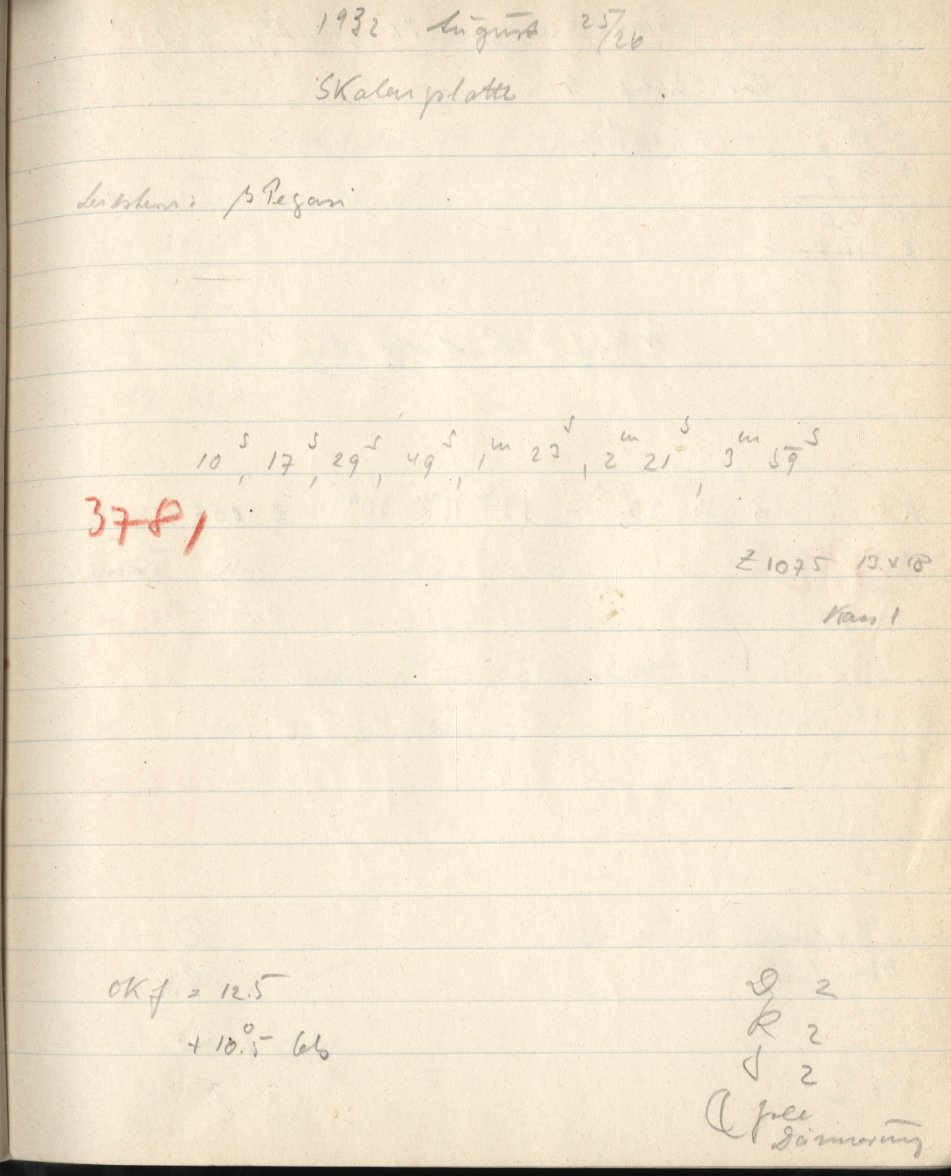 1932 August 25/26
Skalenplatte
Leitstern: β Pegasi
10ˢ, 17ˢ, 29ˢ, 49ˢ, 1ᵐ 23ˢ, 2ᵐ 21ˢ, 3ᵐ 59ˢ
3781
Z 1075
OKf = 12.5
+ 10°.5
2
R 2
J 2
Dämmerung